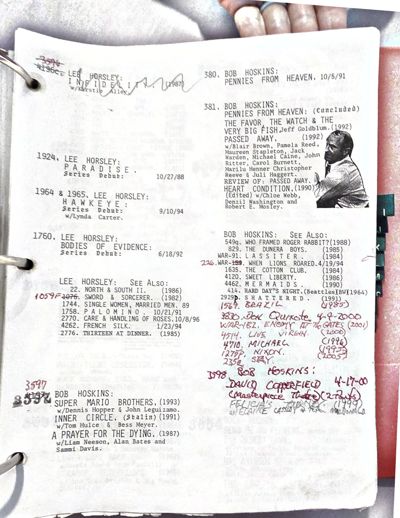 LEE HORSLEY:
INFIDELITY (1987)
w/Kirstie Alley.
1924. LEE HORSLEY:
PARADISE.
Series Debut: 10/27/88
1964 & 1965. LEE HORSLEY:
HAWKEYE:
Series Debut: 9/10/94
w/Lynda Carter.
1760. LEE HORSLEY:
BODIES OF EVIDENCE:
Series Debut: 6/18/92
LEE HORSLEY: See Also:
22. NORTH & SOUTH II. (1986)
1059F SWORD & SORCERER. (1982)
1744. SINGLE WOMEN, MARRIED MEN. 89
1758. PALOMINO. 10/21/91
2770. CARE & HANDLING OF ROSES.10/8/96
4262. FRENCH SILK. 1/23/94
2776. THIRTEEN AT DINNER. (1985)
3597
BOB HOSKINS:
SUPER MARIO BROTHERS. (1993)
w/Dennis Hopper & John Leguizamo.
INNER CIRCLE. (Stalin) (1991)
w/Tom Hulce & Bess Meyer.
A PRAYER FOR THE DYING. (1987)
w/Liam Neeson, Alan Bates and
Sammi Davis.
380. BOB HOSKINS:
PENNIES FROM HEAVEN. 10/5/91
381. BOB HOSKINS:
PENNIES FROM HEAVEN: (Concluded)
THE FAVOR, THE WATCH & THE
VERY BIG FISH. Jeff Goldblum. (1992)
PASSED AWAY. (1992)
w/Blair Brown, Pamela Reed,
Maureen Stapleton, Jack
Warden, Michael Caine, John
Ritter, Carol Burnett,
Marilu Henner Christopher
Reeve & Juli Haggert.
REVIEW OF: PASSED AWAY.
HEART CONDITION. (1990)
(Edited) w/Chloe Webb,
Denzil Washington and
Robert E. Mosley.
BOB HOSKINS: See Also:
549q. WHO FRAMED ROGER RABBIT?(1988)
829. THE DUNERA BOYS. (1985)
WAR-91. LASSITER. (1984)
WHEN LIONS ROARED.4/19/94
1635. THE COTTON CLUB. (1984)
4120. SWEET LIBERTY. (1986)
4462. MERMAIDS. (1990)
414. RAGGEDY
SHATTERED. (1991)
1567 BRAZIL (1985)
3830. DON QUIXOTE 4-9-2000
WAR-182. ENEMY AT THE GATES (2001)
4514. LIVE VIRGIN (2000)
4710. MICHAEL (1996)
NIXON. (1995)
3598 BOB HOSKINS:
DAVID COPPERFIELD 4-17-00
(Masterpiece Theatre) (2 Parts)
FELICIA'S JOURNEY (1999)